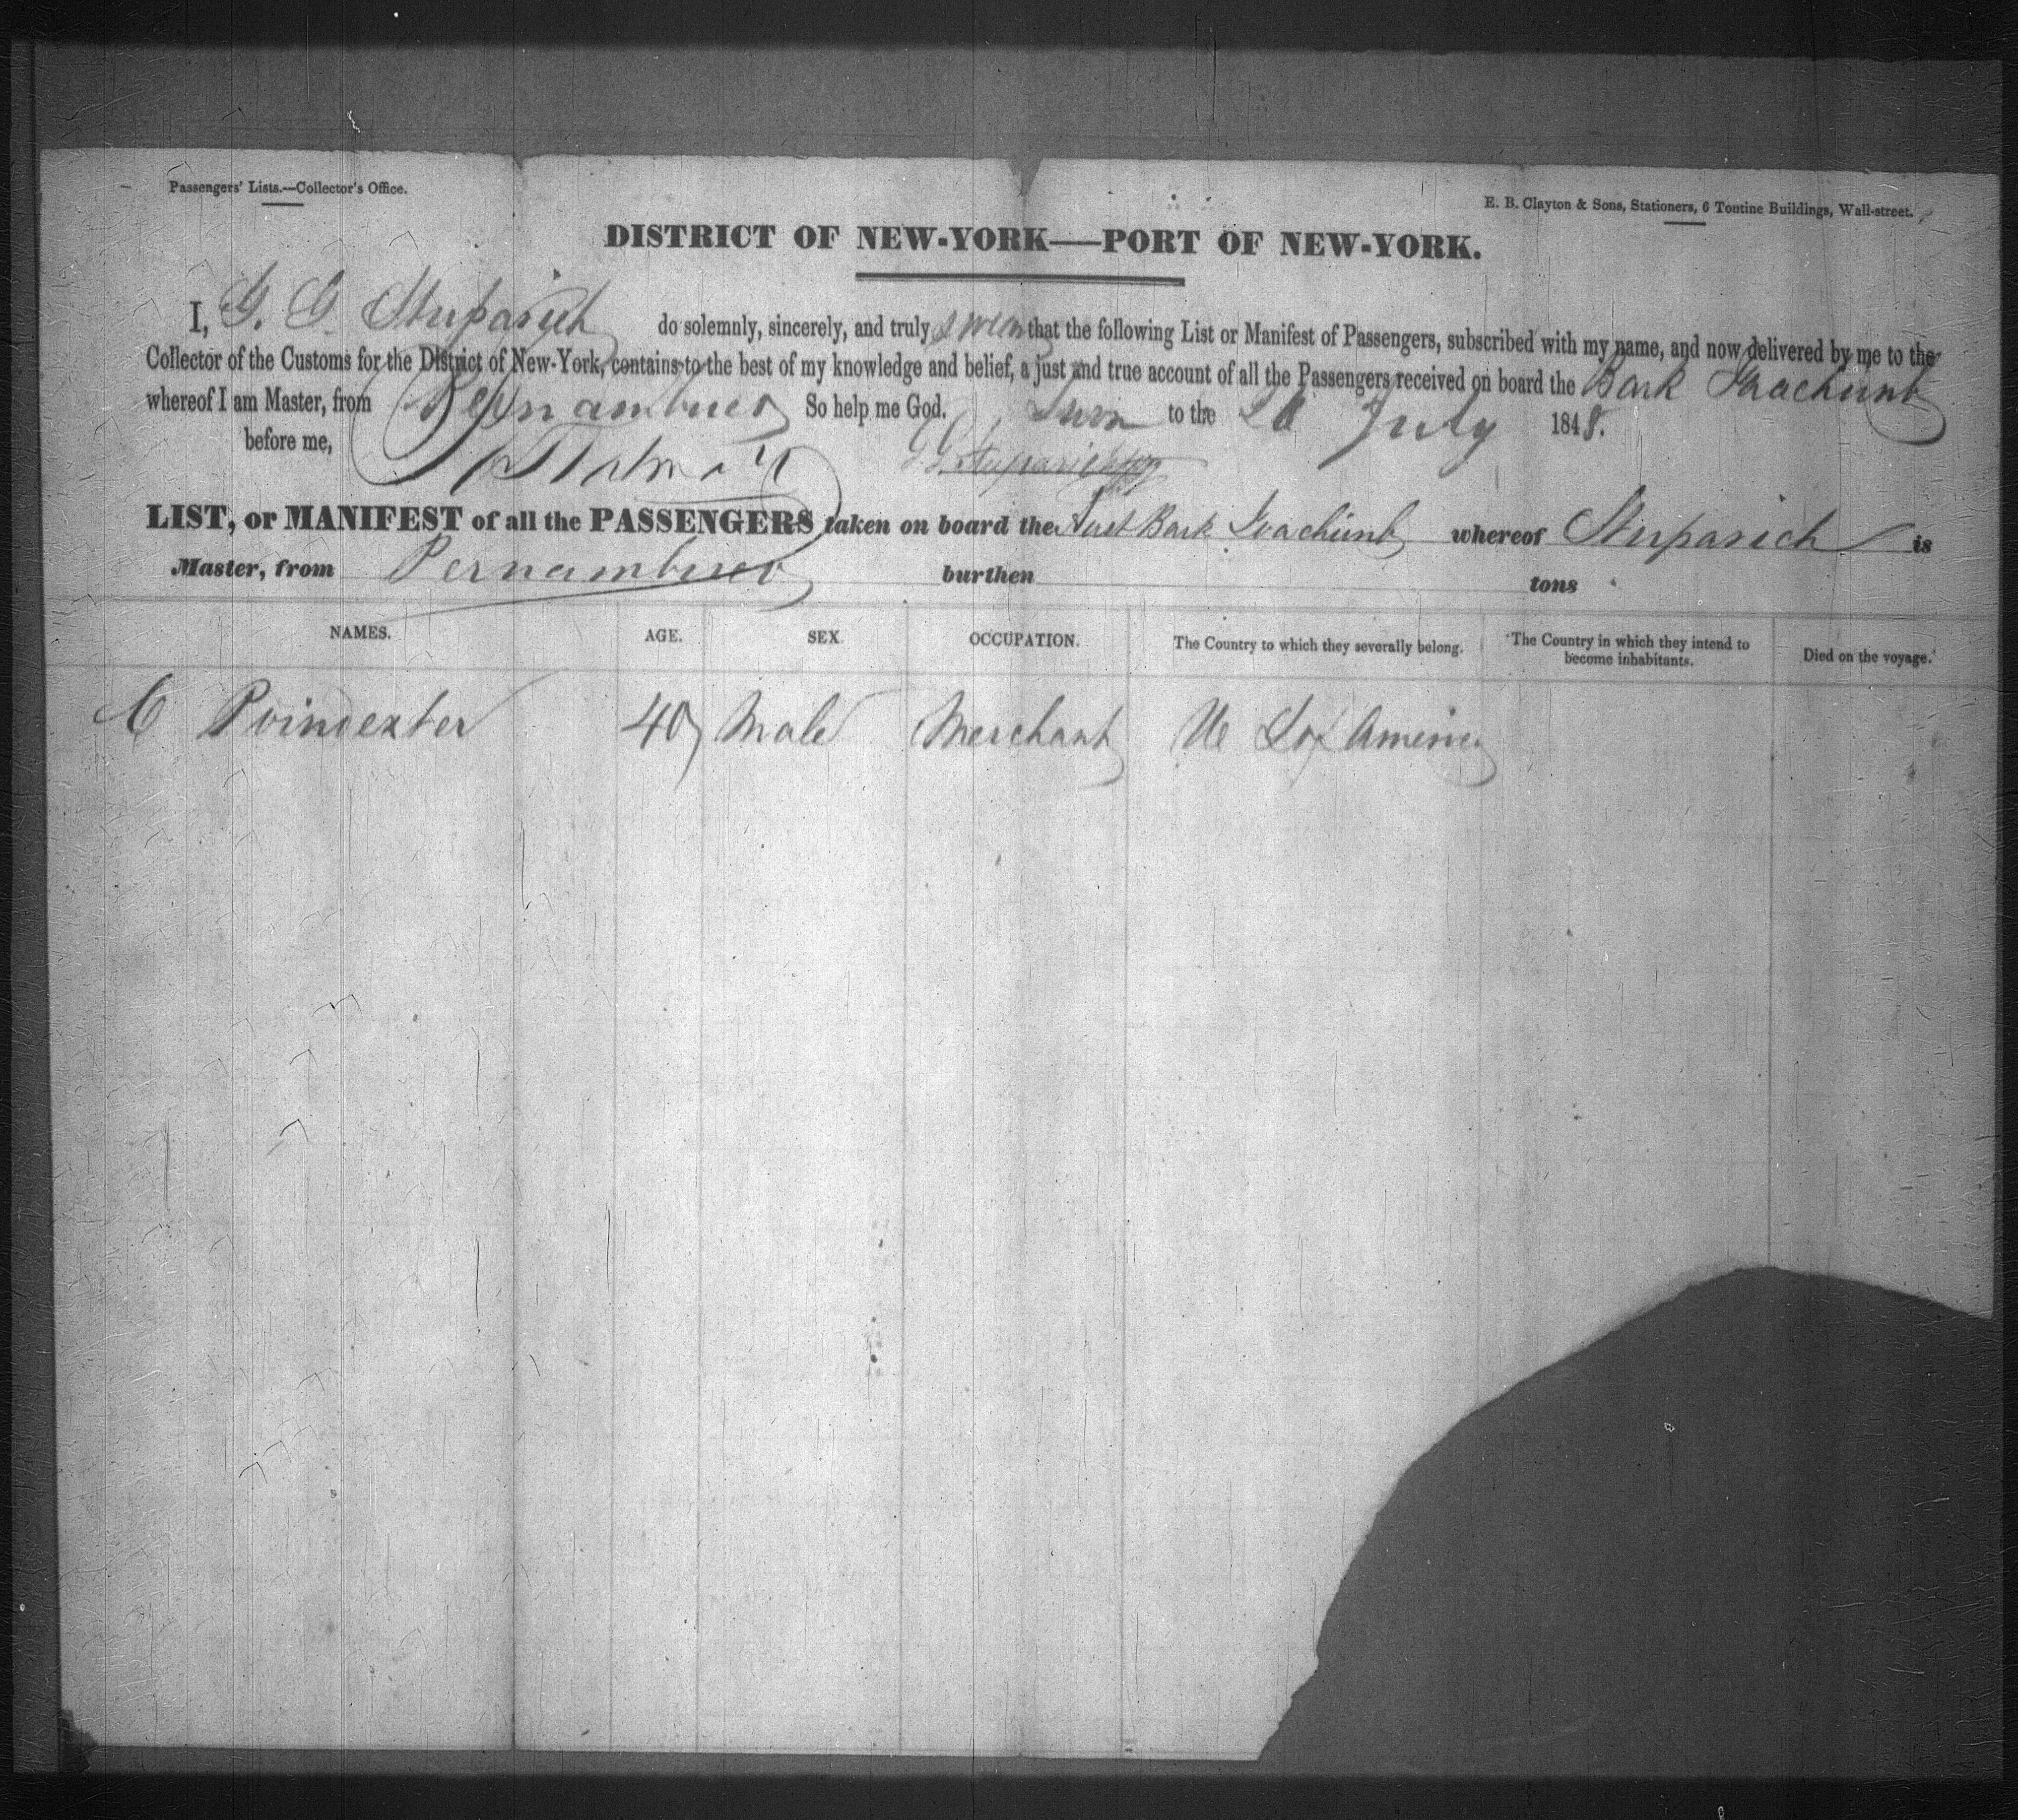 Passengers' Lists.—Collector's Office.
E. B. Clayton & Sons, Stationers, 6 Tontine Buildings, Wall-street.
DISTRICT OF NEW-YORK—PORT OF NEW-YORK.
I, G. G. Stuparich do solemnly, sincerely, and truly swear that the following List or Manifest of Passengers, subscribed with my name, and now delivered by me to the
Collector of the Customs for the District of New-York, contains to the best of my knowledge and belief, a just and true account of all the Passengers received on board the Bark
whereof I am Master, from Pernambuco So help me God. to the July 1848.
before me, G G Stuparich
LIST, or MANIFEST of all the PASSENGERS taken on board the Aust Bark whereof Stuparich is
Master, from Pernambuco burthen tons
NAMES. AGE. SEX. OCCUPATION. The Country to which they severally belong. The Country in which they intend to become inhabitants. Died on the voyage.
C Poindexter 40 Male Merchant U S of America